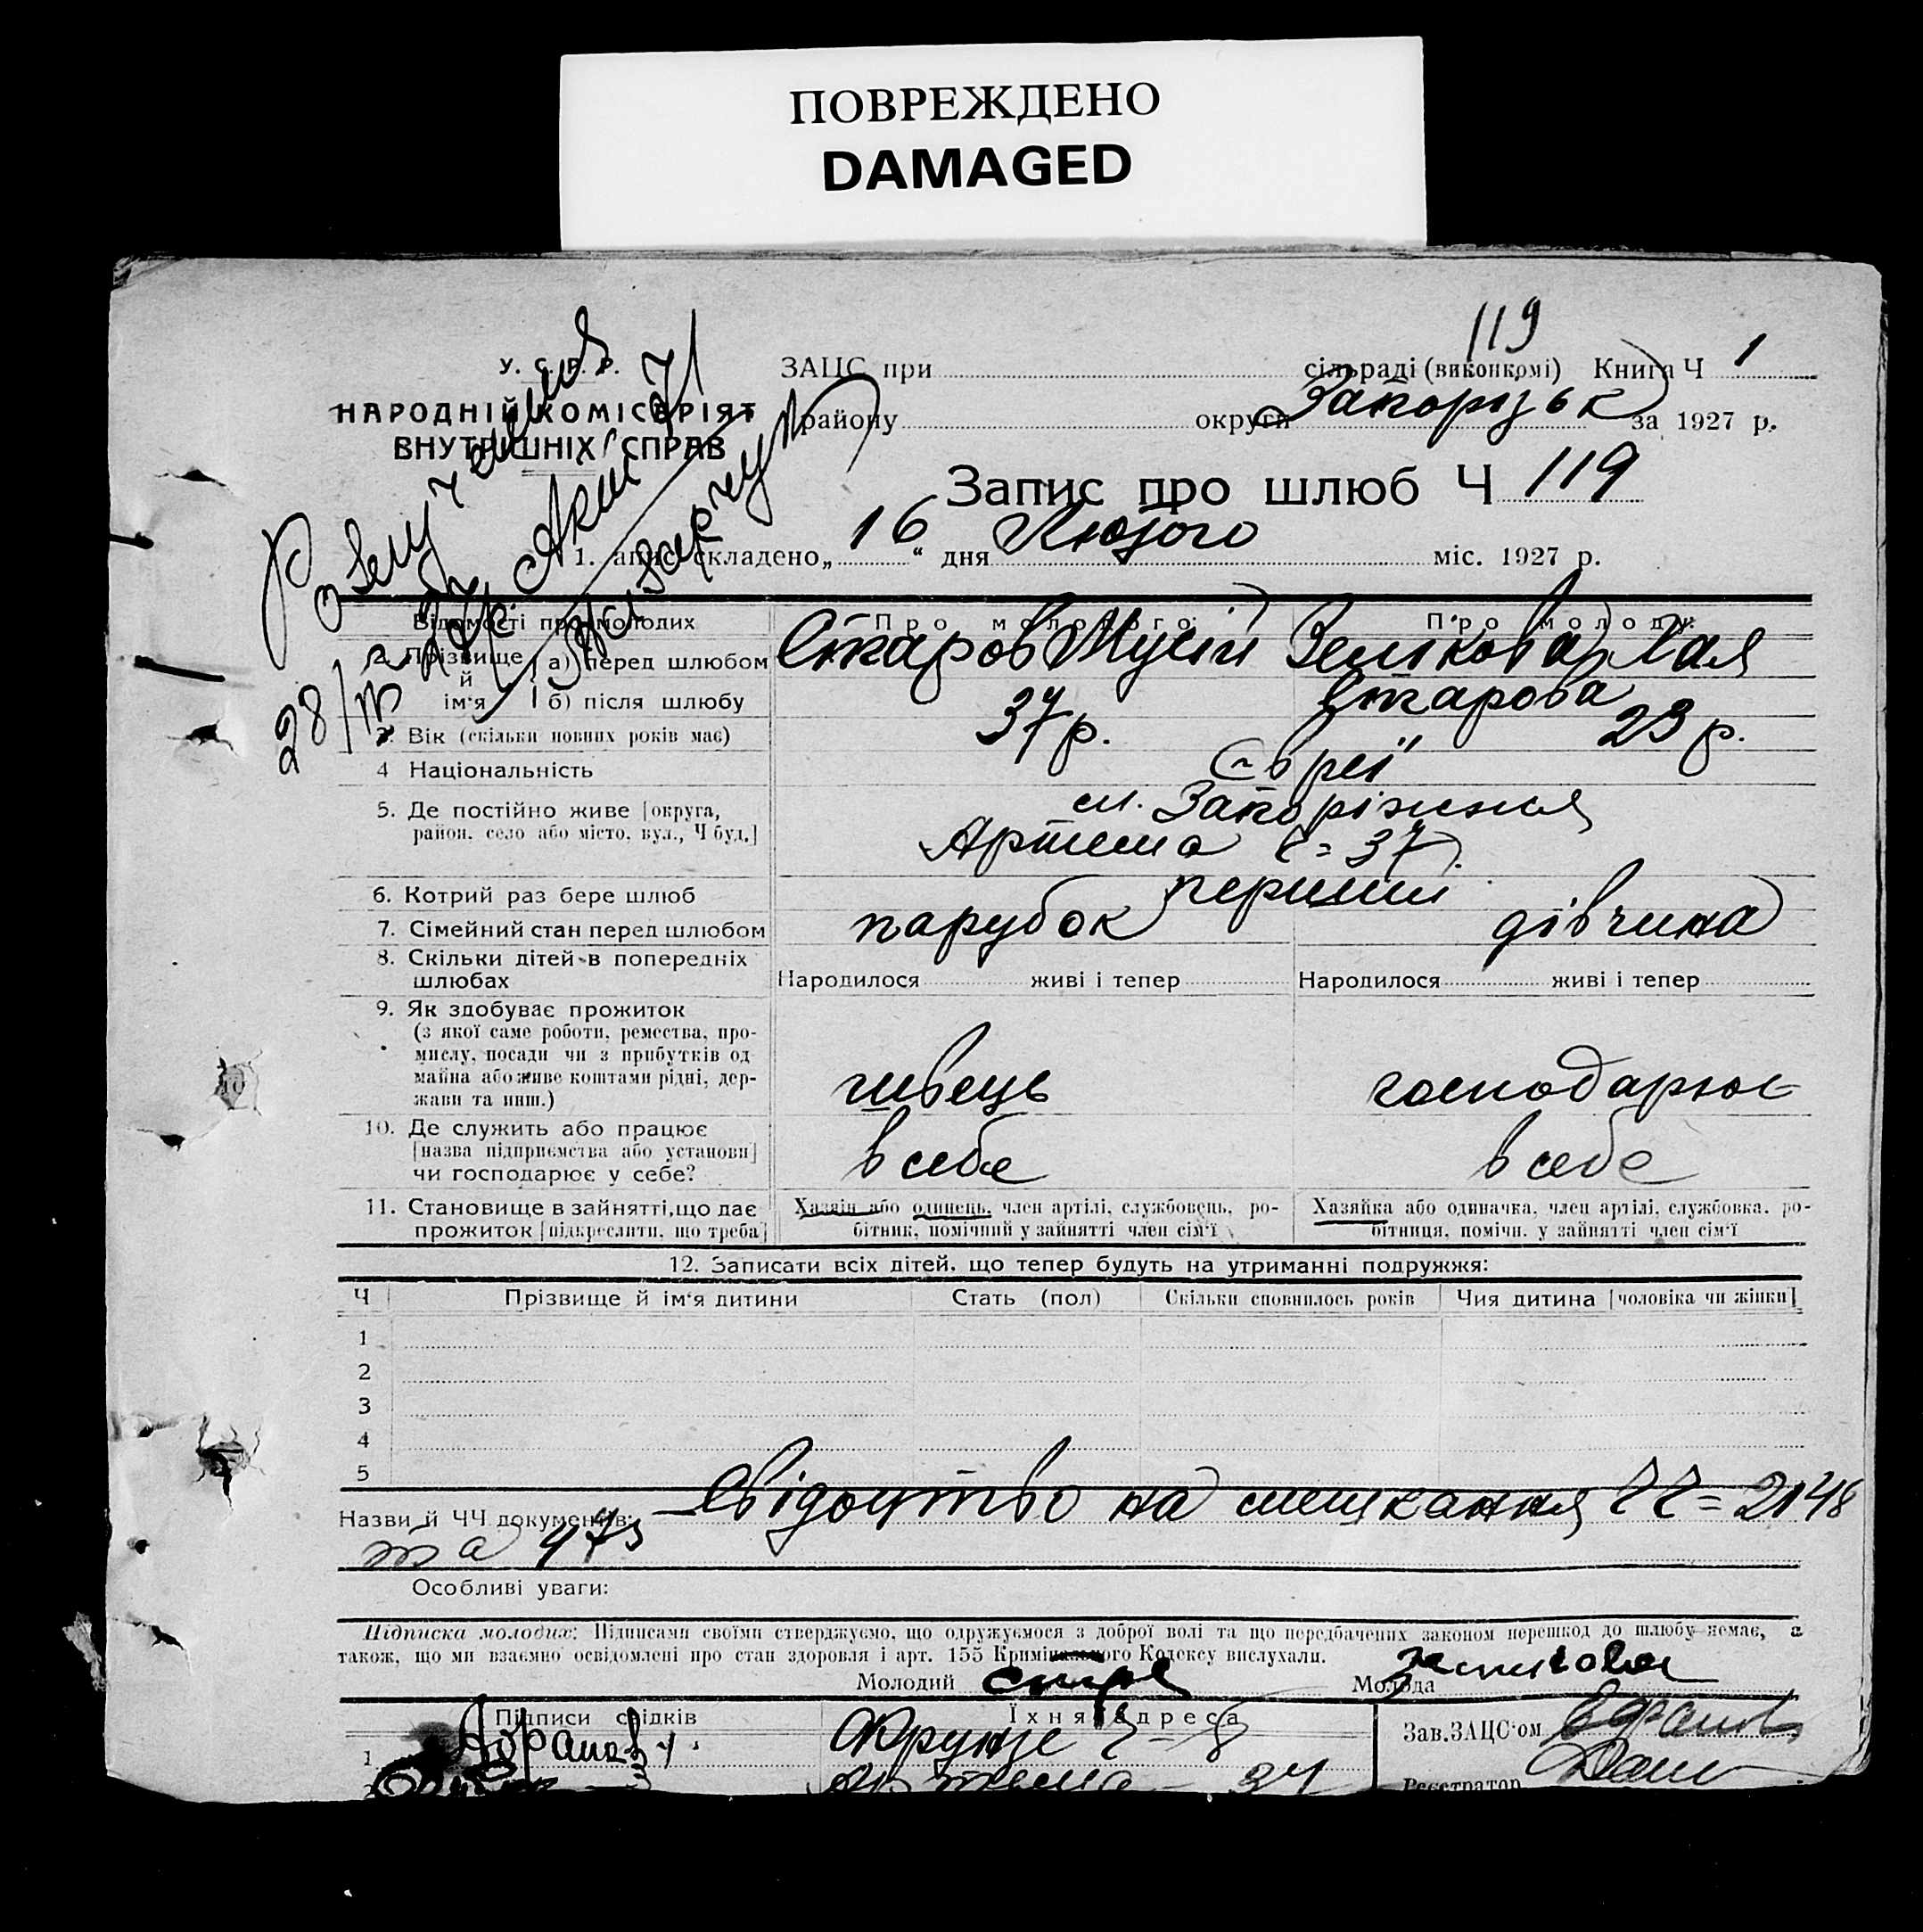 ПОВРЕЖДЕНО
DAMAGED
119
У. С. Р. Р.
НАРОДНІЙ КОМІСЕРІЯТ
ВНУТРІШНІХ СПРАВ
ЗАЦС при сільраді (виконкомі) Книга Ч 1
району округи Запорізьк за 1927 р.
Запис про шлюб Ч 119
1. апис складено „16“ дня Лютого міс. 1927 р.
Відомості про молодих
Про молодого:
Про молоду:
2. Прізвище й ім'я
а) перед шлюбом Старов Мусій Зелікова Хая
б) після шлюбу Старова
3. Вік (скільки повних років має) 37 р. 23 р.
4 Національність Євреї
5. Де постійно живе [округа, м. Запоріжжя
район, село або місто, вул., Ч буд.] Артема Ч = 37
6. Котрий раз бере шлюб перший
7. Сімейний стан перед шлюбом парубок дівчина
8. Скільки дітей в попередніх
шлюбах Народилося живі і тепер Народилося живі і тепер
9. Як здобуває прожиток
(з якої саме роботи, ремества, про-
мислу, посади чи з прибутків од
майна або живе коштами рідні, дер-
жави та инш.) швець господарює
10. Де служить або працює
[назва підприємства або установи] в себе в себе
чи господарює у себе?
11. Становище в зайнятті, що дає
прожиток [підкреслити, що треба]
Хазяїн або одинець, член артілі, службовець, ро-
бітник, помічний у зайнятті член сім'ї
Хазяйка або одиначка, член артілі, службовка, ро-
бітниця, помічн. у зайнятті член сім'ї
12. Записати всіх дітей, що тепер будуть на утриманні подружжя:
Ч Прізвище й ім'я дитини Стать (пол) Скільки сповнилось років Чия дитина [чоловіка чи жінки]
1
2
3
4
5
Назви й ЧЧ документів: Свідоцтво на мешкання ЧЧ = 2148
та 473
Особливі уваги:
Підписка молодих: Підписами своїми стверджуємо, що одружуємося з доброї волі та що передбачених законом перешкод до шлюбу немає, а
також, що ми взаємно освідомлені про стан здоровля і арт. 155 Кримінального Кодексу вислухали.
Молодий Молода
Підписи свідків Їхня адреса Зав. ЗАЦС'ом
1. Фрунзе Ч - 8
Артема - 37 Реєстратор